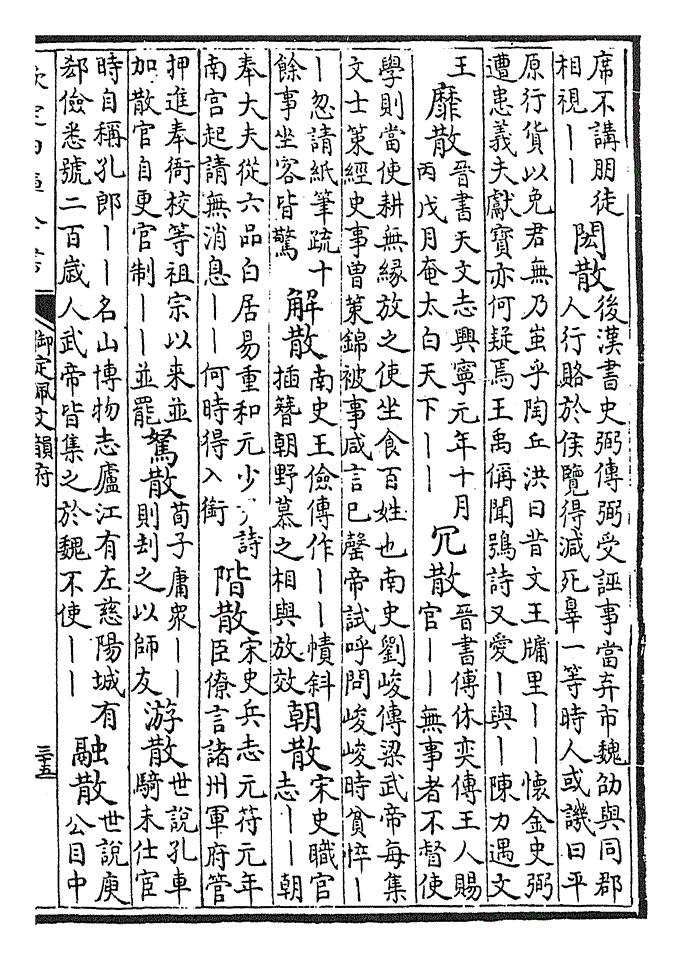 席不講朋徒
相視丨丨
閎散
後漢書史弼傳弼受誣事當弃市魏劭與同郡
人行賂於侯覽得減死辠一等時人或譏曰平
原行貨以免君無乃蚩乎陶丘洪曰昔文王牖里丨丨懷金史弼
遭患義夫獻寶亦何疑焉王禹偁聞鴞詩又愛丨與丨陳力遇文
王
靡散
晉書天文志興寧元年十月
丙戌月奄太白天下丨丨
冗散
晉書傅休奕傳王人賜
官丨丨無事者不督使
學則當使耕無緣放之使坐食百姓也南史劉峻傳梁武帝每集
文士策經史事曽策錦被事咸言已罄帝試呼問峻峻時貧悴丨
丨忽請紙筆疏十
餘事坐客皆驚
解散
南史王儉傳作丨丨幘斜
插簪朝野慕之相與放效
朝散
宋史職官
志丨丨朝
奉大夫從六品白居易重和元少尹詩
南宫起請無消息丨丨何時得入銜
階散
宋史兵志元符元年
臣僚言諸州軍府管
押進奉衙校等祖宗以来並
加散官自更官制丨丨並罷
駑散
荀子庸衆丨丨
則刦之以師友
游散
世說孔車
騎未仕宦
時自稱孔郎丨丨名山博物志廬江有左慈陽城有
郄儉悉號二百歳人武帝皆集之於魏不使丨丨
融散
世說庾
公目中
欽定四庫全書
御定佩文韻府
三十五